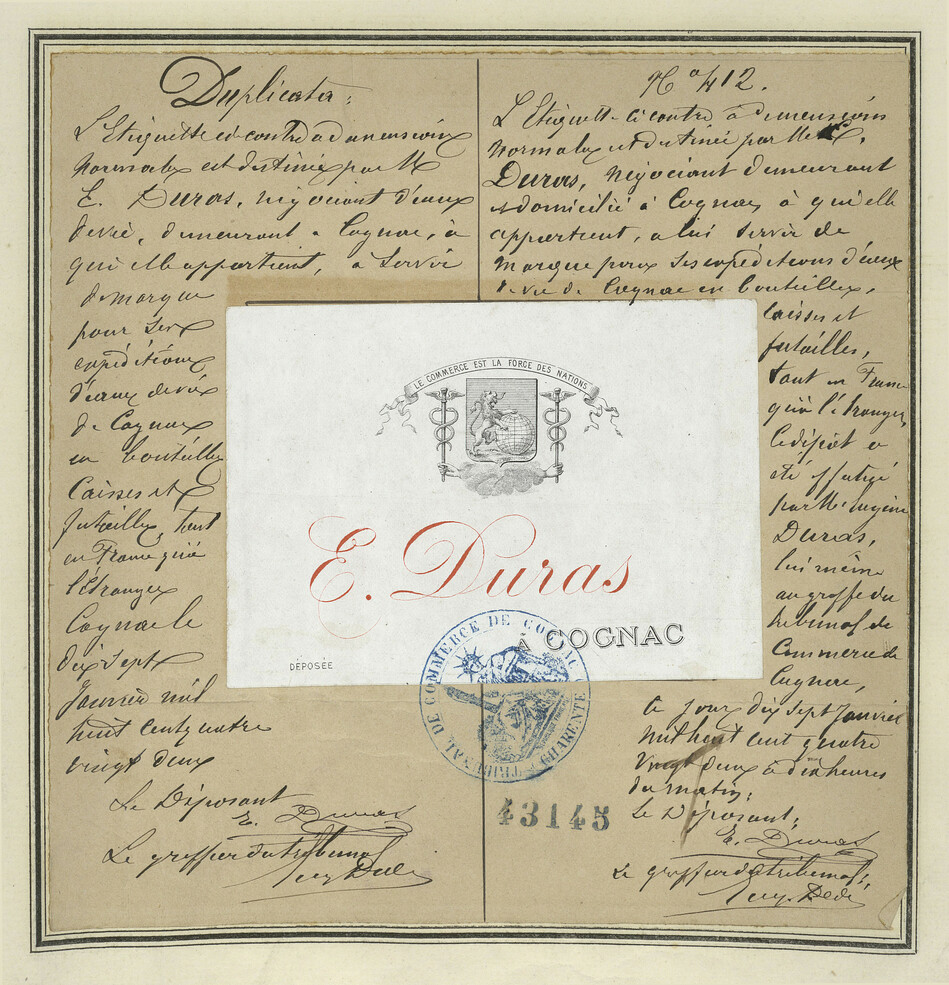 Duplicata:
L'Etiquette ci contre a dimensions
normales est destinée par M
E. Duras, négociant d'eaux
devie, demeurant a Cognac, à
qui elle appartient, a servir
de marque
pour ses
expéditions
d'eaux de vie
de Cognac
en bouteilles
Caisses et
futailles, tant
en France qu'à
l'étranger
Cognac le
dix sept
Janvier mil
huit cent quatre
vingt deux
Le Déposant
E. Duras
Le greffier du tribunal
N° 412.
L'Etiquette ci contre a dimensions
normales est destinée par M E.
Duras, négociant demeurant
et domicilié à Cognac, à qui elle
appartient, a lui servir de
marque pour ses expéditions d'eaux
de vie de Cognac en bouteilles,
caisses et
futailles,
tant en France
qu'à l'étranger,
Le dépôt a
été effectué
par M. Eugène
Duras,
lui même
au greffe du
tribunal de
Commerce de
Cognac,
Ce jour dix sept Janvier
mil huit cent quatre
vingt deux à dix heures
du matin;
Le Déposant;
E. Duras
Le greffier du tribunal;
LE COMMERCE EST LA FORCE DES NATIONS
E. Duras
À COGNAC
DÉPOSÉE
TRIBUNAL DE COMMERCE DE COGNAC CHARENTE
43145